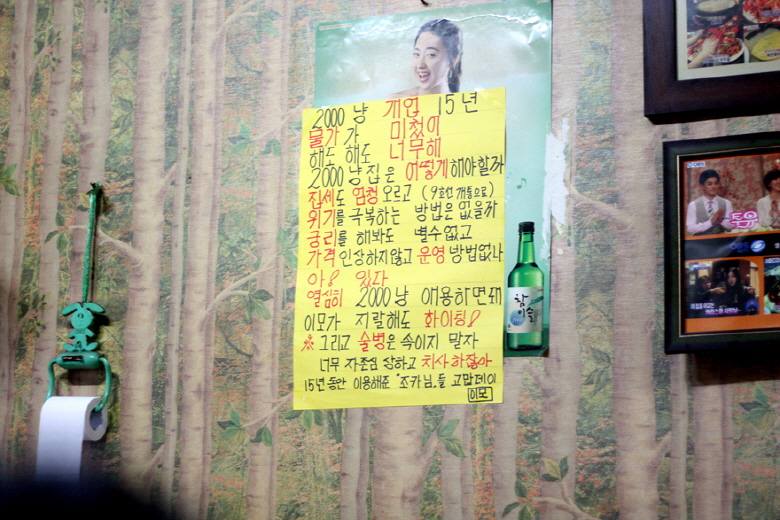 2000냥 개업 15년
물가가 미쳤어
해도 해도 너무해
2000냥집은 어떻게 해야할까
집세도 엄청 오르고 (9호선 개통으로)
위기를 극복하는 방법은 없을까
궁리를 해봐도 별수없고
가격 인상하지않고 운영 방법없나
아! 있다
열심히 2000냥 애용하면돼
이모가 지랄해도 화이팅!
※ 그리고 술병은 속이지 말자
너무 자존심 상하고 치사하잖아
15년동안 이용해준 "조카님"들 고맙데이
이모
참이슬